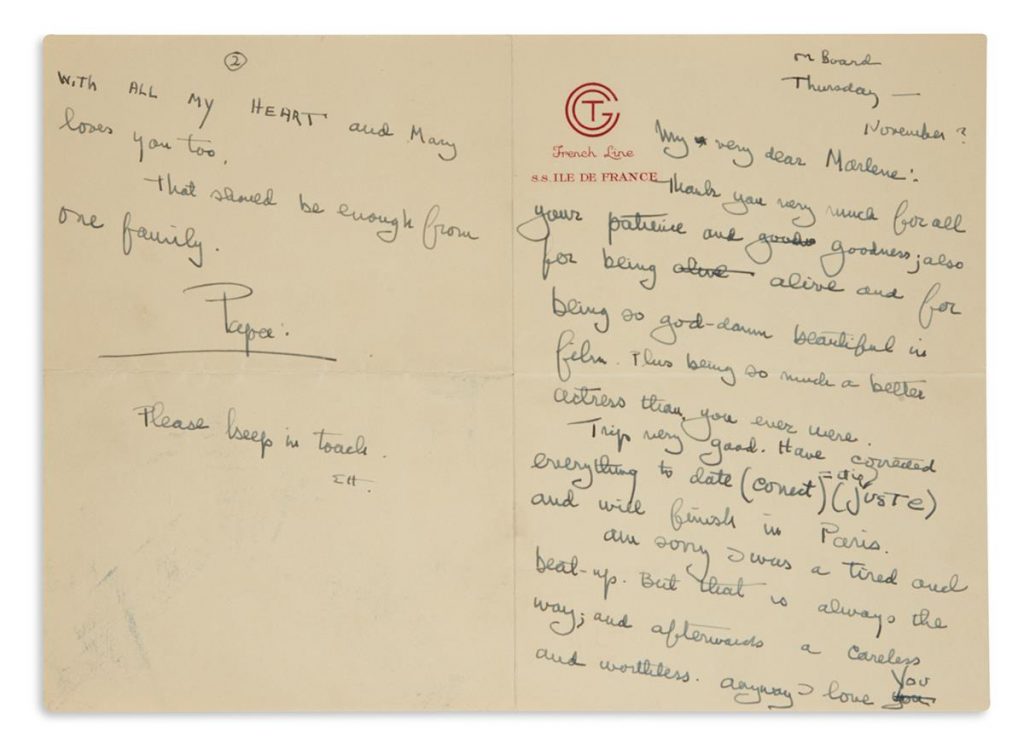 GTC
French Line
S.S. ILE DE FRANCE
on Board
Thursday —
November ?
My very dear Marlene:
Thank you very much for all
your patience and goodness; also
for being alive alive and for
being so god-damn beautiful in
film. Plus being so much a better
actress than you ever were.
Trip very good. Have corrected
everything to date (correct) (juste)
and will finish in Paris.
Am sorry I was a tired and
beat-up. But that is always the
way; and afterwards a careless
and worthless. Anyway I love you You
2
WITH ALL MY HEART and Mary
loves you too.
That should be enough from
one family.
Papa.
Please keep in touch.
EH.